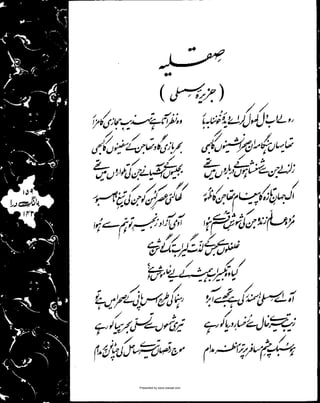 صقلیہ
(جزیرۂ سسلی)
رو لے اب دل کھول کر اے دیدۂ خوننابہ بار
وہ نظر آتا ہے تہذیب حجازی کا مزار
تھا یہاں ہنگامہ ان صحرا نشینوں کا کبھی
بحر بازی گاہ تھا جن کے سفینوں کا کبھی
زلزلے جن سے شہنشاہوں کے درباروں میں تھے
بجلیوں کے آشیانے جن کی تلواروں میں تھے
اک جہان تازہ کا پیغام تھا جن کا ظہور
کھا گئی عصر کہن کو جن کی تیغ ناصبور
مردہ عالم زندہ جن کی شورش قم سے ہوا
آدمی آزاد زنجیر توہم سے ہوا
غلغلوں سے جس کے لذت گیر اب تک گوش ہے
کیا وہ تکبیر اب ہمیشہ کے لیے خاموش ہے
آہ اے سسلی! سمندر کی ہے تجھ سے آبرو
رہنما کی طرح اس پانی کے صحرا میں ہے تو
زیب تیرے خال سے رخسار دریا کو رہے
تیری شمعوں سے تسلی بحر پیما کو رہے
ہو سبک چشم مسافر پر ترا منظر مدام
موج رقصاں تیرے ساحل کی چٹانوں پر مدام
۱۵۹
بانگ درا
۱۳۳
Presented by www.ziaraat.com